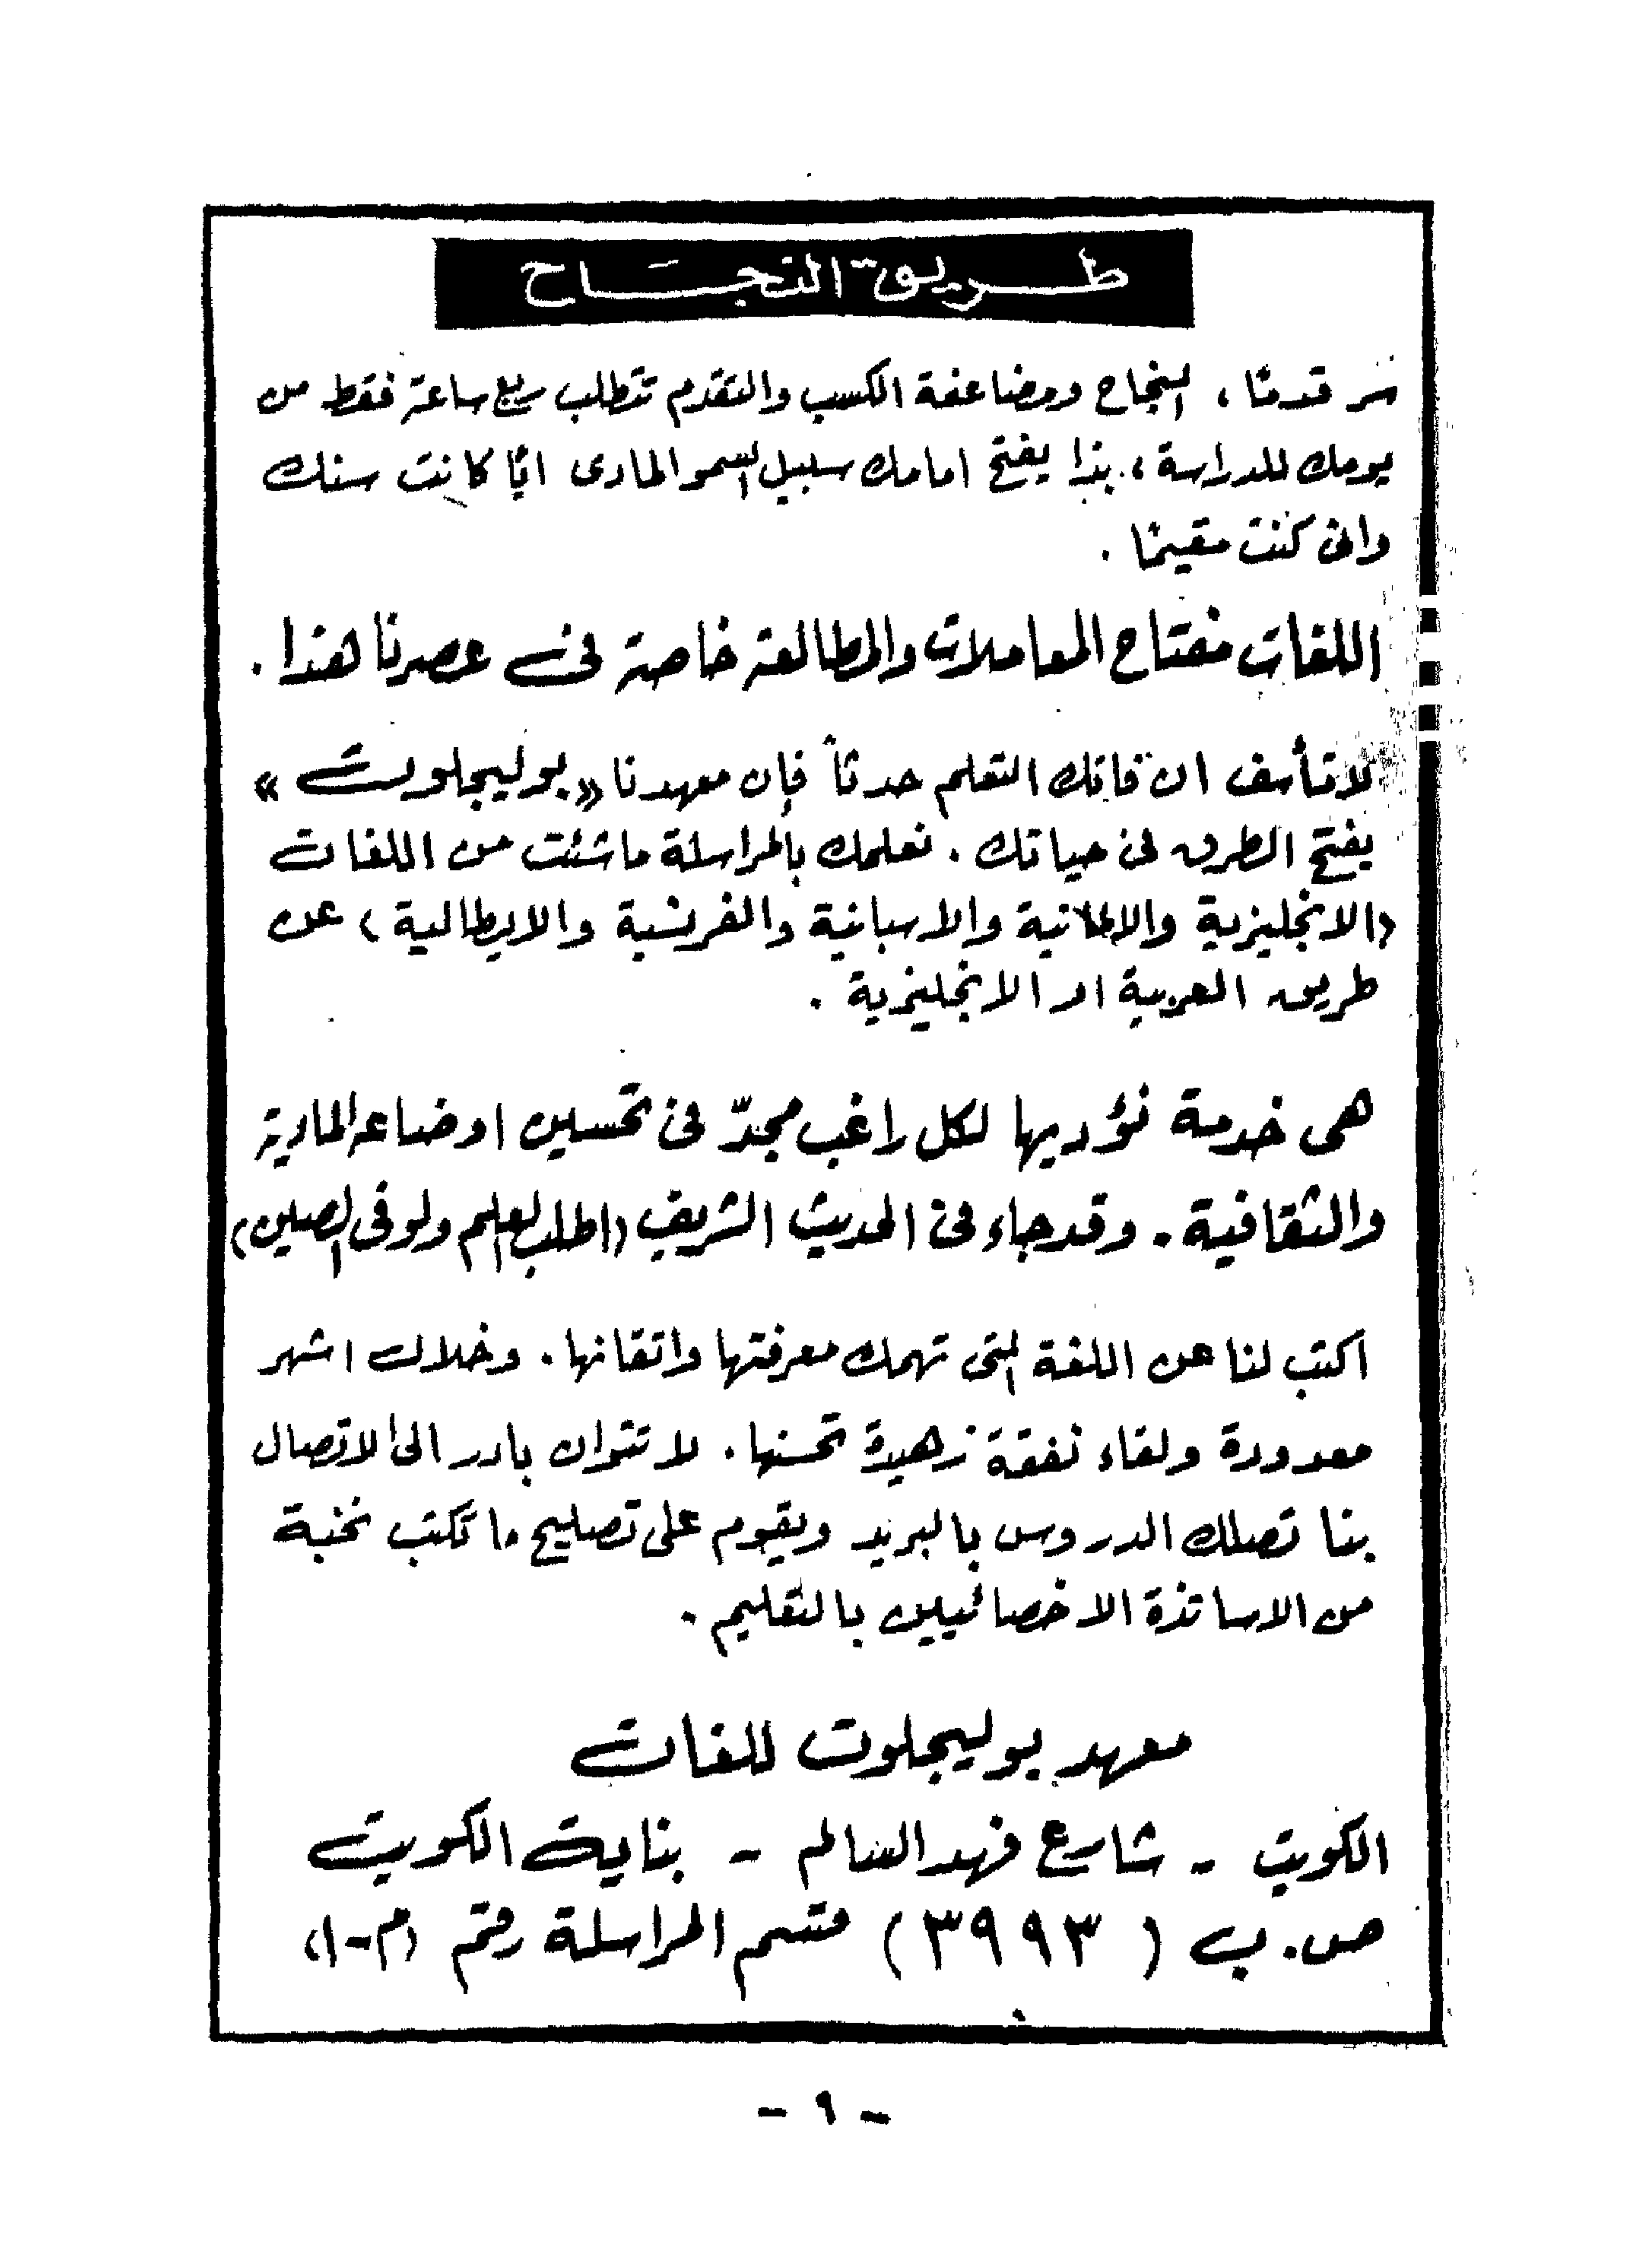 طريق النجاح
سر قدمًا، النجاح ومضاعفة الكسب والتقدم تتطلب ربع ساعة فقط من
يومك للدراسة، بذا يفتح امامك سبيل السمو المادى ايًا كانت سنك
وانى كنت مقيمًا .
اللغات مفتاح المعاملات والمطالعة خاصة فى عصرنا هذا .
لا تأسف ان فاتك التعلم حدثاً فإن معهدنا « بوليجلوت »
يفتح الطرق فى حياتك . نعلمك بالمراسلة ما شئت من اللغات
(الانجليزية والالمانية والاسبانية والفرنسية والايطالية) عن
طريق العربية او الانجليزية .
هى خدمة نؤديها لكل راغب مجدّ فى تحسين اوضاعه المادية
والثقافية . وقد جاء فى الحديث الشريف (اطلب العلم ولو فى الصين)
اكتب لنا عن اللغة التى تهمك معرفتها واتقانها . وخلال اشهر
معدودة ولقاء نفقة زهيدة تحسنها . لا تتوان بادر الى الاتصال
بنا تصلك الدروس بالبريد ويقوم على تصليح ما تكتب نخبة
من الاساتذة الاخصائيين بالتعليم .
معهد بوليجلوت للغات
الكويت - شارع فهد السالم - بناية الكويت
ص. ب ( ٣٩٩٣ ) قسم المراسلة رقم (م-١)
- ٩ -